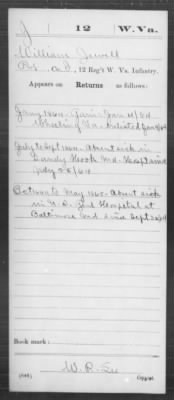 J | 12 | W. Va.
William Jewell
Co. I, 12 Reg't W. Va. Infantry.
Appears on Returns as follows:
Jany 1864 - Gain Jany 4/64
Wheeling Va. Enlisted Jany 4/64
July to Sept 1864 - Absent sick in
Sandy Hook Md. Hospital since
July 25/64
Oct 1864 to May 1865 - Absent sick
in U.S. Genl Hospital at
Baltimore Md since Sept 26/64
Book mark:
(646) Copyist.